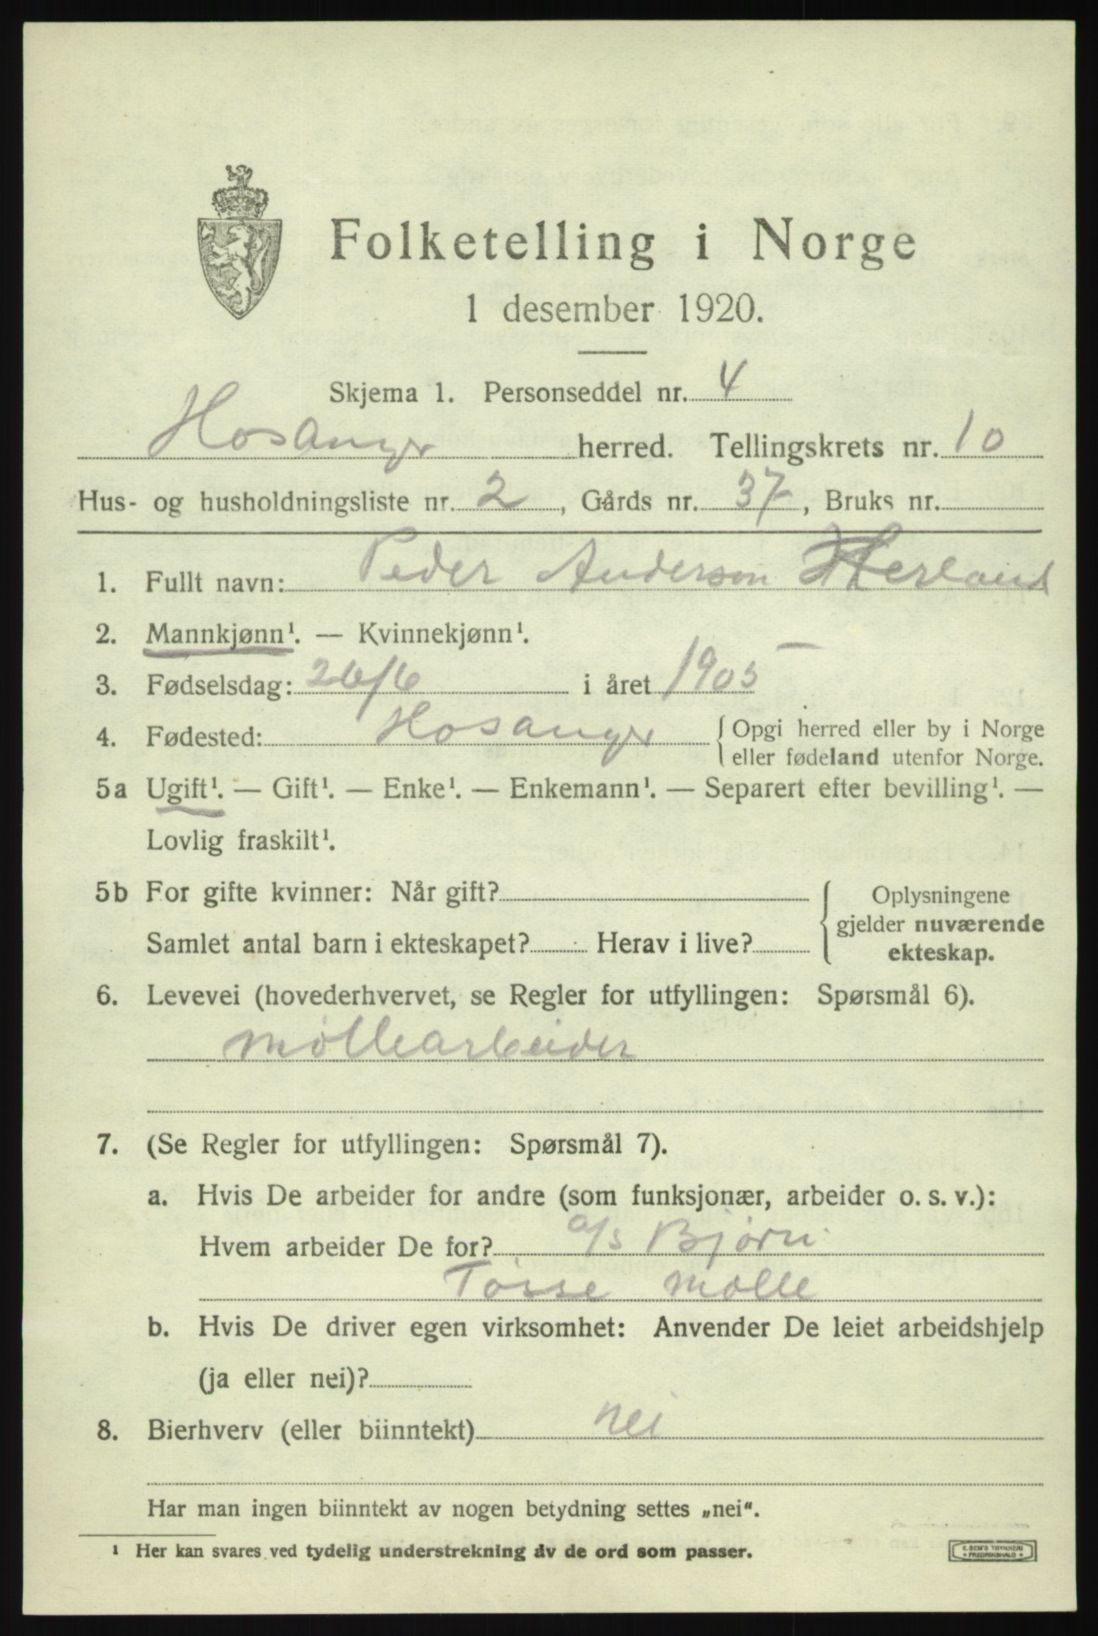 Folketelling i Norge
1 desember 1920.
Skjema 1. Personseddel nr. 4
Hosanger herred. Tellingskrets nr. 10
Hus- og husholdningsliste nr. 2, Gårds nr. 37, Bruks nr.
1. Fullt navn: Peder Anderson Herland
2. Mannkjønn¹. — Kvinnekjønn¹.
3. Fødselsdag: 26/6 i året 1905
4. Fødested: Hosanger {Opgi herred eller by i Norge
eller fødeland utenfor Norge.
5a Ugift¹. — Gift¹. — Enke¹. — Enkemann¹. — Separert efter bevilling¹. —
Lovlig fraskilt¹.
5b For gifte kvinner: Når gift?
Samlet antal barn i ekteskapet? Herav i live?
Oplysningene
gjelder nuværende
ekteskap.
6. Levevei (hovederhvervet, se Regler for utfyllingen: Spørsmål 6).
møllearbeider
7. (Se Regler for utfyllingen: Spørsmål 7).
a. Hvis De arbeider for andre (som funksjonær, arbeider o. s. v.):
Hvem arbeider De for? a/s Bjørn
Tøsse mølle
b. Hvis De driver egen virksomhet: Anvender De leiet arbeidshjelp
(ja eller nei)?
8. Bierhverv (eller biinntekt) nei
Har man ingen biinntekt av nogen betydning settes „nei“.
¹ Her kan svares ved tydelig understrekning av de ord som passer.